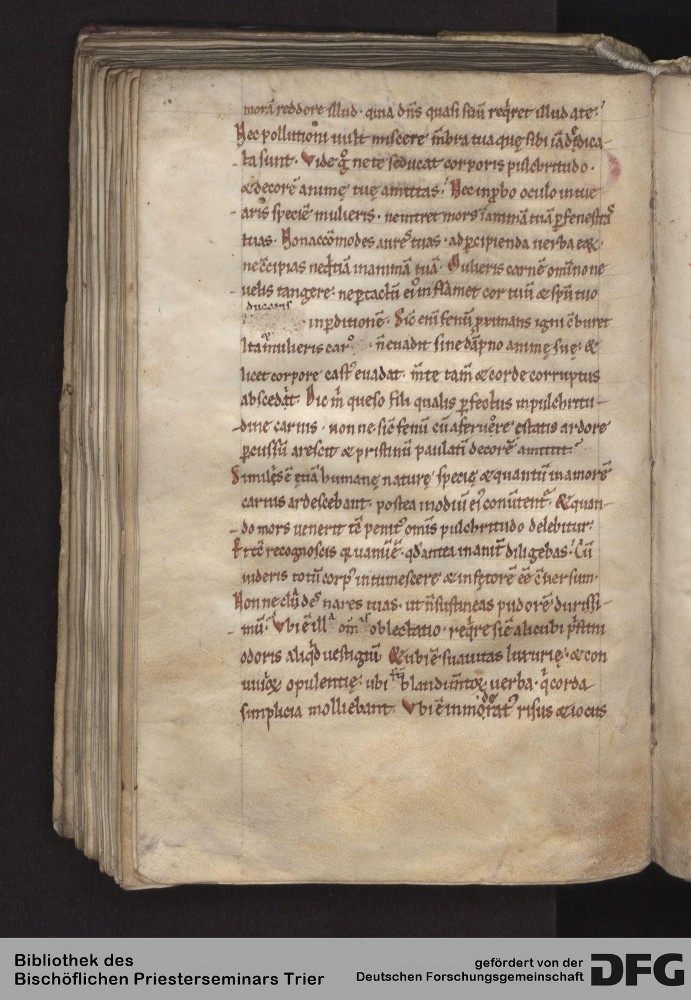 morā reddere illud · quia dn̄s quasi suū req̇ret illud a te ·
Nec pollutioni uult miscere m̄bra tua quę sibi iā dedica
ta sunt · Vide gͦ ne te seducat corporis pulchritudo ·
& decorē animę tuę amittas · Nec inprobo oculo intue
aris speciē mulieris · ne intret mors ī animā tuā p fenestras
tuas · Non accōmodes aures tuas · ad percipienda uerba eaꝝ ·
ne ꝯcipias neq̇tiā in anima tua · Mulieris carnē omīno ne
uelis tangere · ne p tactū eiꝰ inflāmet cor tuū & sp̄m tuū
ducaris
in pditionē · Sic enī fenū p̄rimans igni ꝯburet̄
Ita q̇ mulieris carō n̄ euadit sine dāpno animę suę · &
licet corpore castꝰ euadat · m̄te tam̄ & corde corruptus
abscedat · Dic ṁ queso fili qualis pfectus in pulchritu-
dine carnis · nonne sic fenū cū a feruore estatis ardore
pcussū arescit & pristinū paulati decorē amittit ·
Similis ē etiā humanę naturę speciē & quantū in amorē
carnis ardescebant · postea in odiū eiꝰ conūtent̄ · & quan-
do mors uenerit tc̄ penitꝰ omīs pulchritudo delebitur ·
Et tc̄ recognoscis q̇ uanū ē · qd̄ antea inanit̄ diligebas · Cū
uideris totū corpꝰ intumescere & in fętorē ē̄ ꝯuersum ·
Nonne clūdes nares tuas · ut n̄ sustineas pudorē durissi-
mū · Vbi ē ill' om̄is oblectatio · req̇re si ē alicubi p̄stini
odoris aliq̇d uestigiū & ubi ē suauitas luxurię · & con
uiuioꝝ opulentię · ubi st̄ blandim̄toꝝ uerba · q̇ corda
simplicia molliebant · Vbi ē inmoderat' risus & iocus
Bibliothek des
Bischöflichen Priesterseminars Trier
gefördert von der
Deutschen Forschungsgemeinschaft
DFG